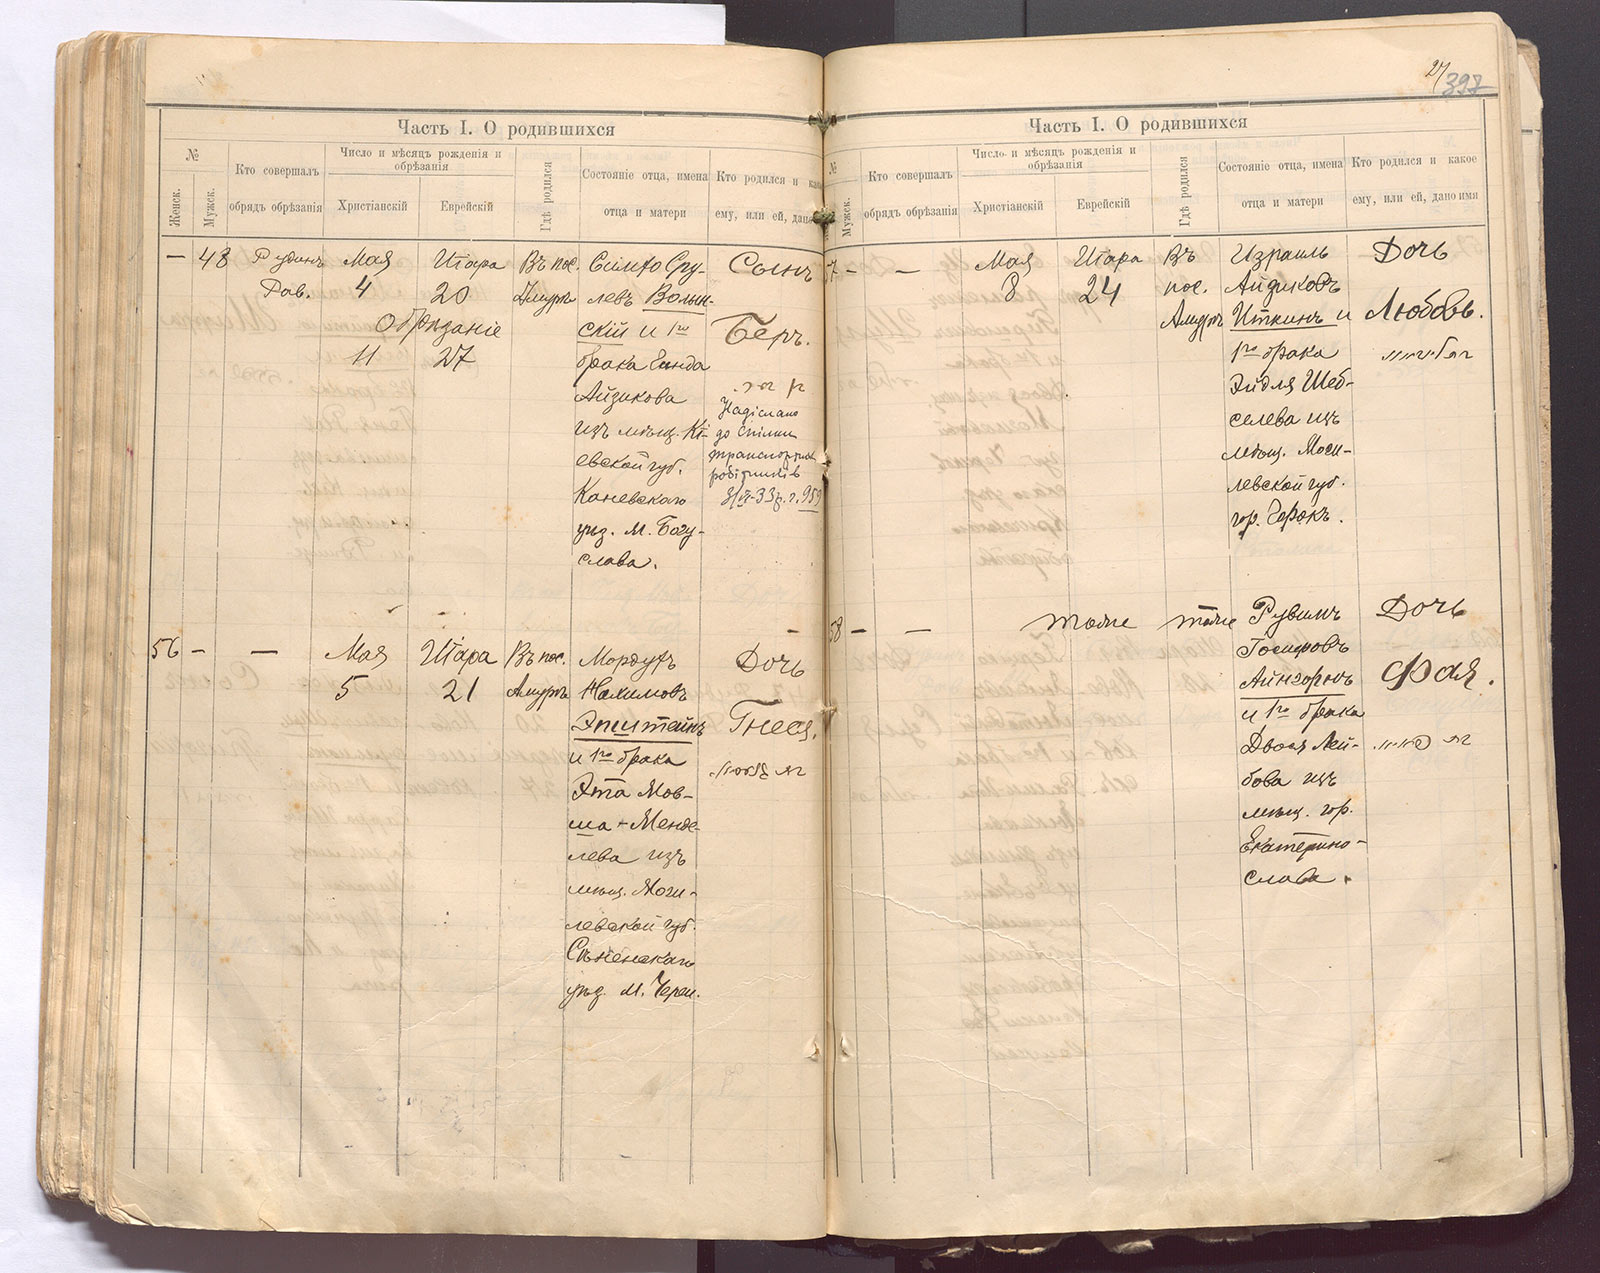 27
397
Часть I. О родившихся
№
Женск.
Мужск.
Кто совершалъ
обрядъ обрѣзанія
Число и мѣсяцъ рожденія и
обрѣзанія
Христіанскій
Еврейскій
Гдѣ родился
Состояніе отца, имена
отца и матери
Кто родился и како
ему, или ей, дано
— 48
Рудинъ
Рав.
Мая
4
Обрѣзаніе
11
Iара
20
27
Въ пос.
Амуръ
Симхо Сру-
левъ Волын-
скій и 1го
брака Гинда
Айзикова
изъ мѣщ. Кі-
евской губ.
Каневскаго
уѣз. м. Богу-
слава.
Сынъ
Беръ.
Надіслано
до спілки
транспортних
робітників
56 — —
Мая
5
Iара
21
Въ пос.
Амуръ
Мордухъ
Нахимовъ
Эпштейнъ
и 1го брака
Эта Мов-
ша-Менде-
лева изъ
мѣщ. Моги-
левской губ.
Сѣненскаго
уѣз. м. Череи.
Дочь
Гнеся.
Часть I. О родившихся
№
Мужск.
Кто совершалъ
обрядъ обрѣзанія
Число и мѣсяцъ рожденія и
обрѣзанія
Христіанскій
Еврейскій
Гдѣ родился
Состояніе отца, имена
отца и матери
Кто родился и какое
ему, или ей, дано имя
7 — —
Мая
8
Iара
24
Въ
пос.
Амуръ
Израиль
Айзиковъ
Иткинъ и
1го брака
Эйдля Шеб-
селева изъ
мѣщ. Моги-
левской губ.
гор. Горокъ.
Дочь
Любовь.
58 — —
тоже
тоже
Рувимъ
Іосифовъ
Айнгорнъ
и 1го брака
Двося Лей-
бова изъ
мѣщ. гор.
Екатерино-
слава.
Дочь
Фая.